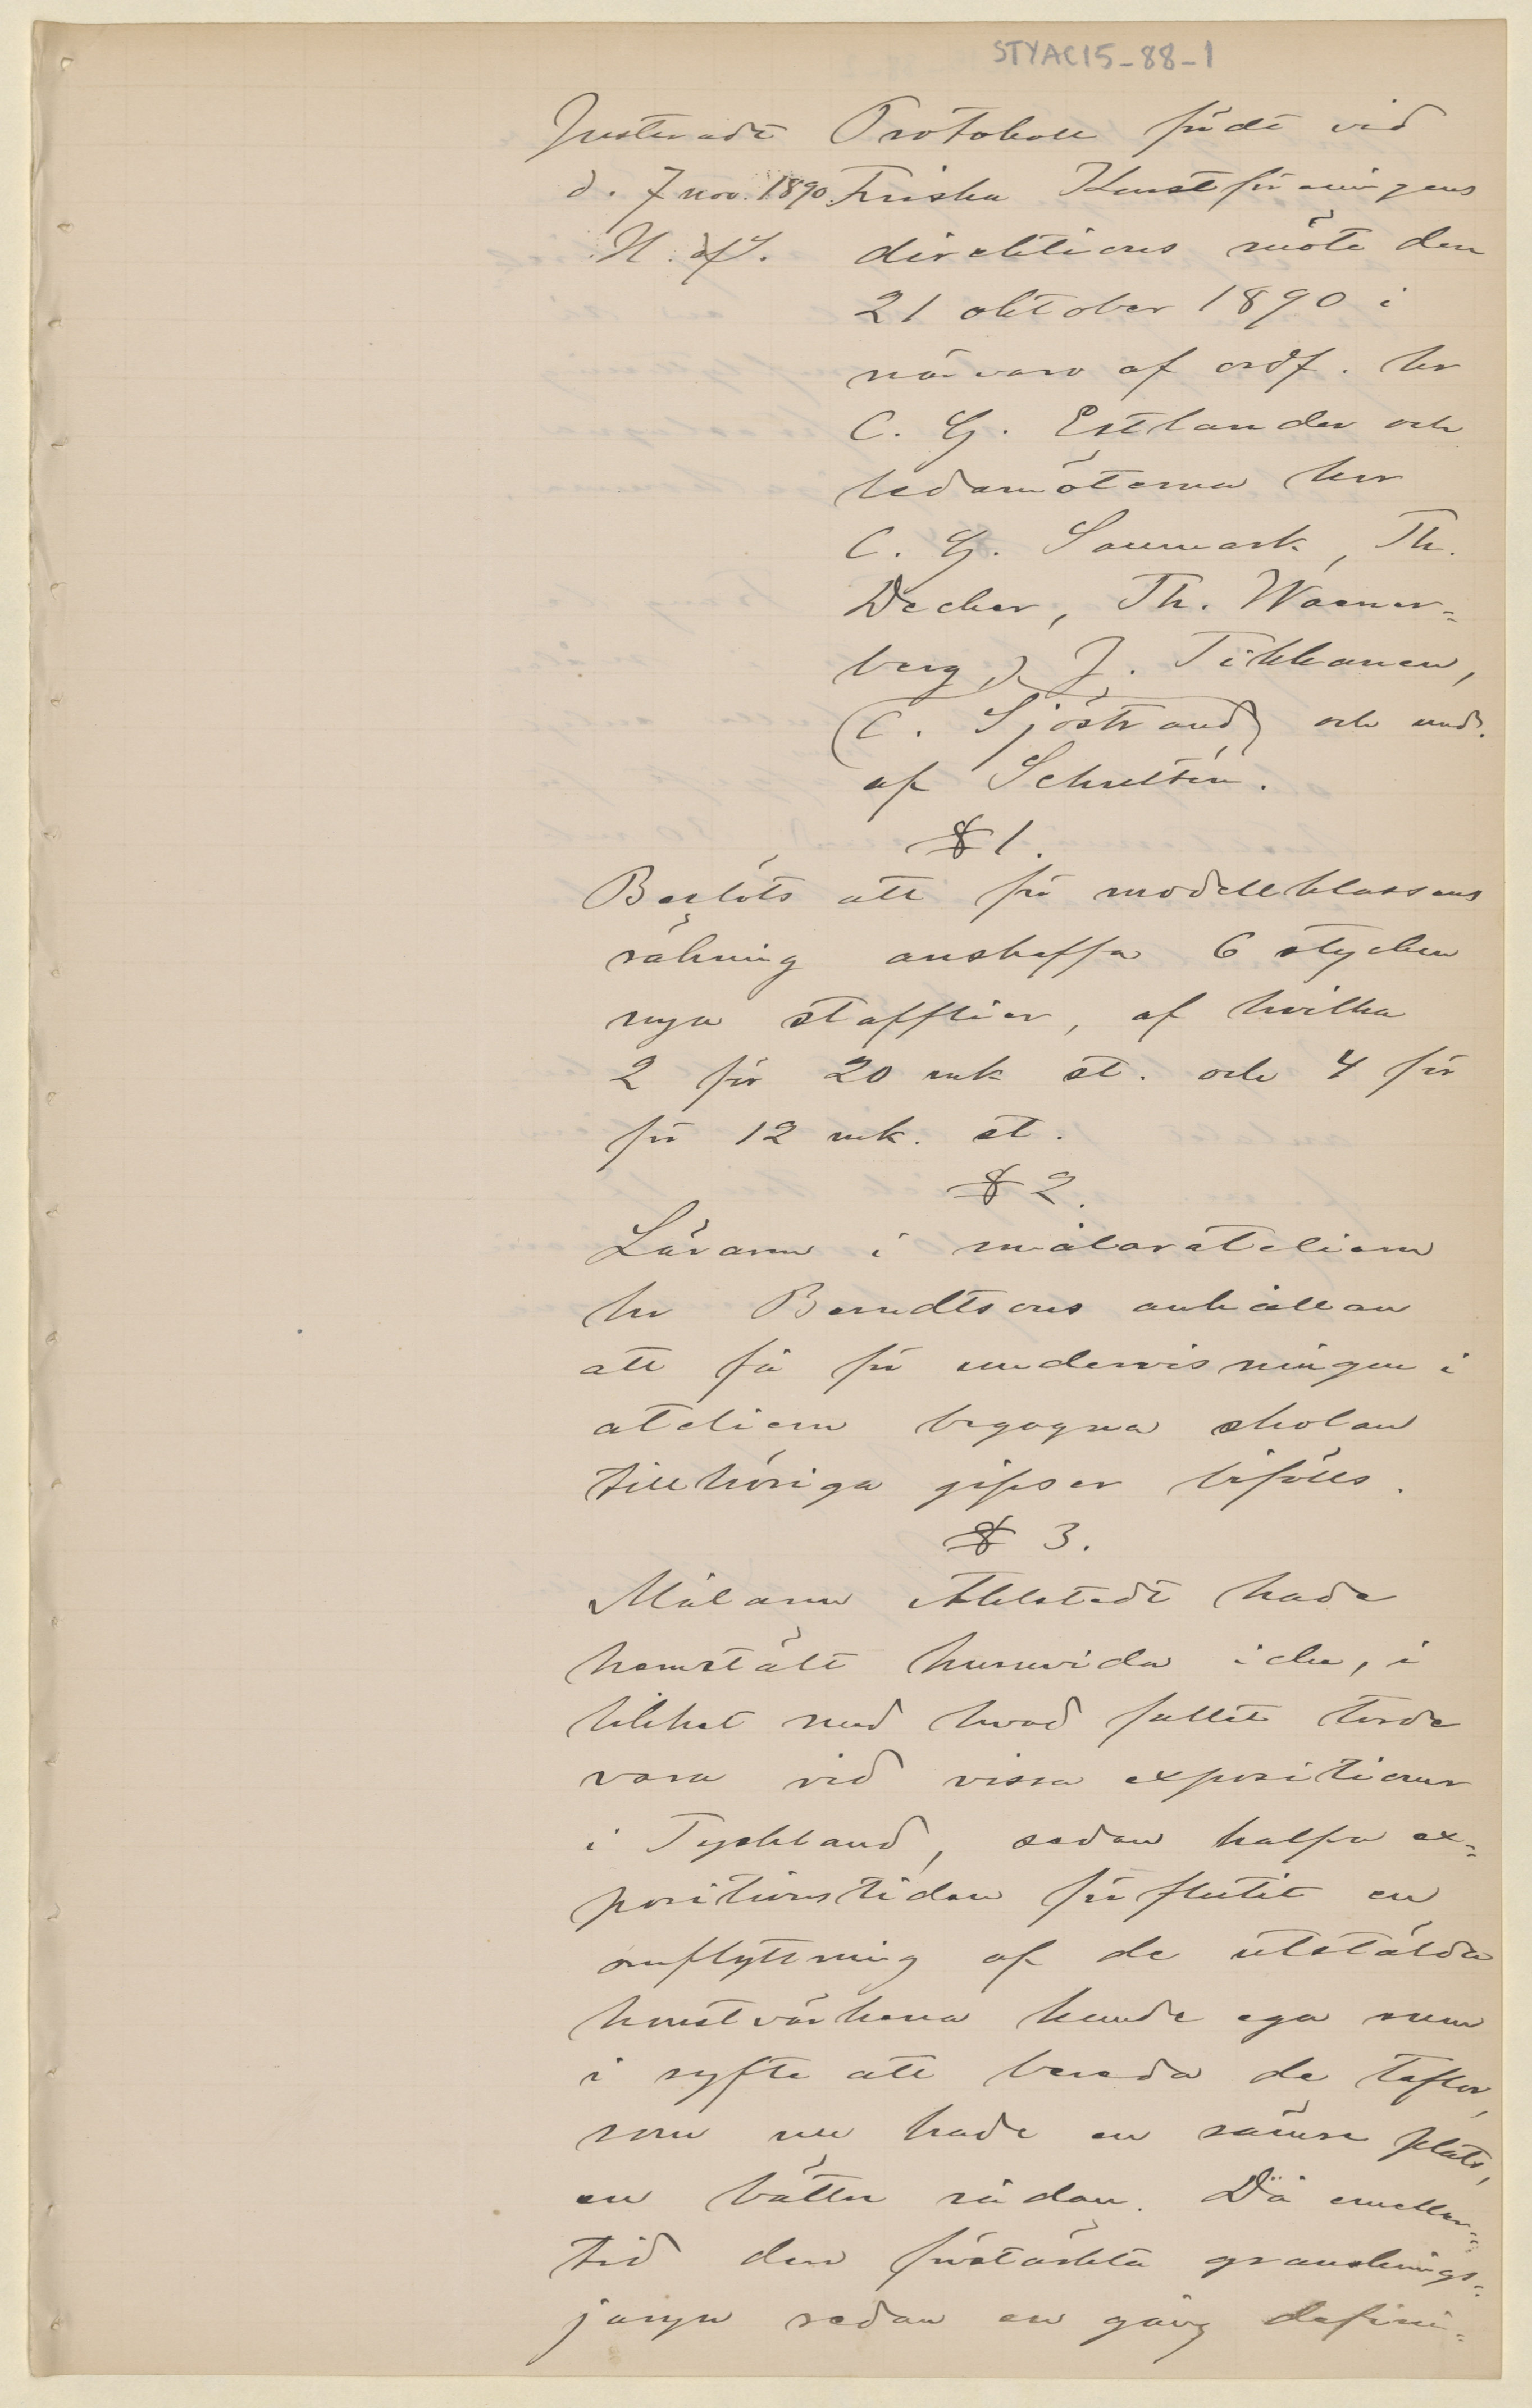 STYAC15-88-1
Justeradt Protokoll fördt vid
d. 7 nov. 1890. Finska Konstföreningens
direktions möte den
21 oktober 1890 i
närvaro af ordf. hr
C. G. Estlander och
ledamöterna hrr
C. G. Sanmark, Th.
Decker, Th. Waener-
berg, J. J. Tikkanen,
(C. Sjöstrand) och und.
af Schultén.
§ 1.
Beslöts att för modellklassens
räkning anskaffa 6 stycken
nya stafflier, af hvilka
2 för 20 mk st. och 4 för
för 12 mk. st.
§ 2.
Läraren i målarateliern
hr Berndtsons anhållan
att få för undervisningen i
ateliern begagna skolan
tillhöriga gipser bifölls.
§ 3.
Målaren Ahlstedt hade
hemstält huruvida icke, i
likhet med hvad fallet torde
vara vid vissa expositioner
i Tyskland, sedan halfva ex-
positionstiden förflutit en
omflyttning af de utstälda
konstvärkena kunde ega rum
i syfte att bereda de taflor,
som nu hade en sämre plats,
en bättre sådan. Då emeller-
tid den förstärkta gransknings-
juryn redan en gång defini-